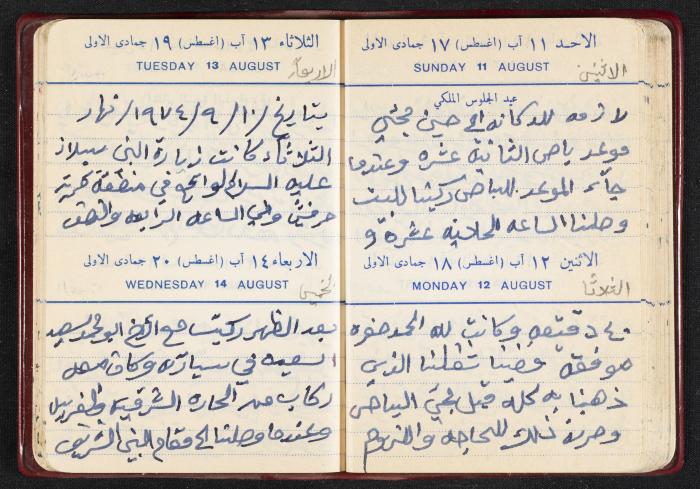 الاحـد ١١ آب (اغسطس) ١٧ جمادى الاولى
SUNDAY 11 AUGUST
الاثنين
عيد الجلوس الملكي
لازمه للدكانه الى حين مجئي
موعد باص الثانية عشره وعندما
جآء الموعد للباص ركبنا للبيت
وصلنا الساعه الحادية عشرة و
الاثنين ١٢ آب (اغسطس) ١٨ جمادى الاولى
MONDAY 12 AUGUST
الثلاثا
٤٠ دقيقه وكانت لله الحمد سفره
موفقه قضينا شغلنا الذي
ذهبنا به كله قبل مجئ الباص
وحرنة ذلك للحاجه واللزوم
الثلاثاء ١٣ آب (اغسطس) ١٩ جمادى الاولى
TUESDAY 13 AUGUST
الاربعاء
بتاريخ ١٠/٩/١٩٧٤ نهار
الثلاثاء كانت زيارة النبي سبلان
عليه السلام الواقع في منطقة قرية
حرفيش وفي الساعه الرابعه والنصف
الاربعاء ١٤ آب (اغسطس) ٢٠ جمادى الاولى
WEDNESDAY 14 AUGUST
الخميس
بعد الظهر ركبت مع الأخ ابو محمد سعيد
في سيارته وكان معه
ركاب من الحاره الشرقية
وعندما وصلنا الى مقام النبي الشريف